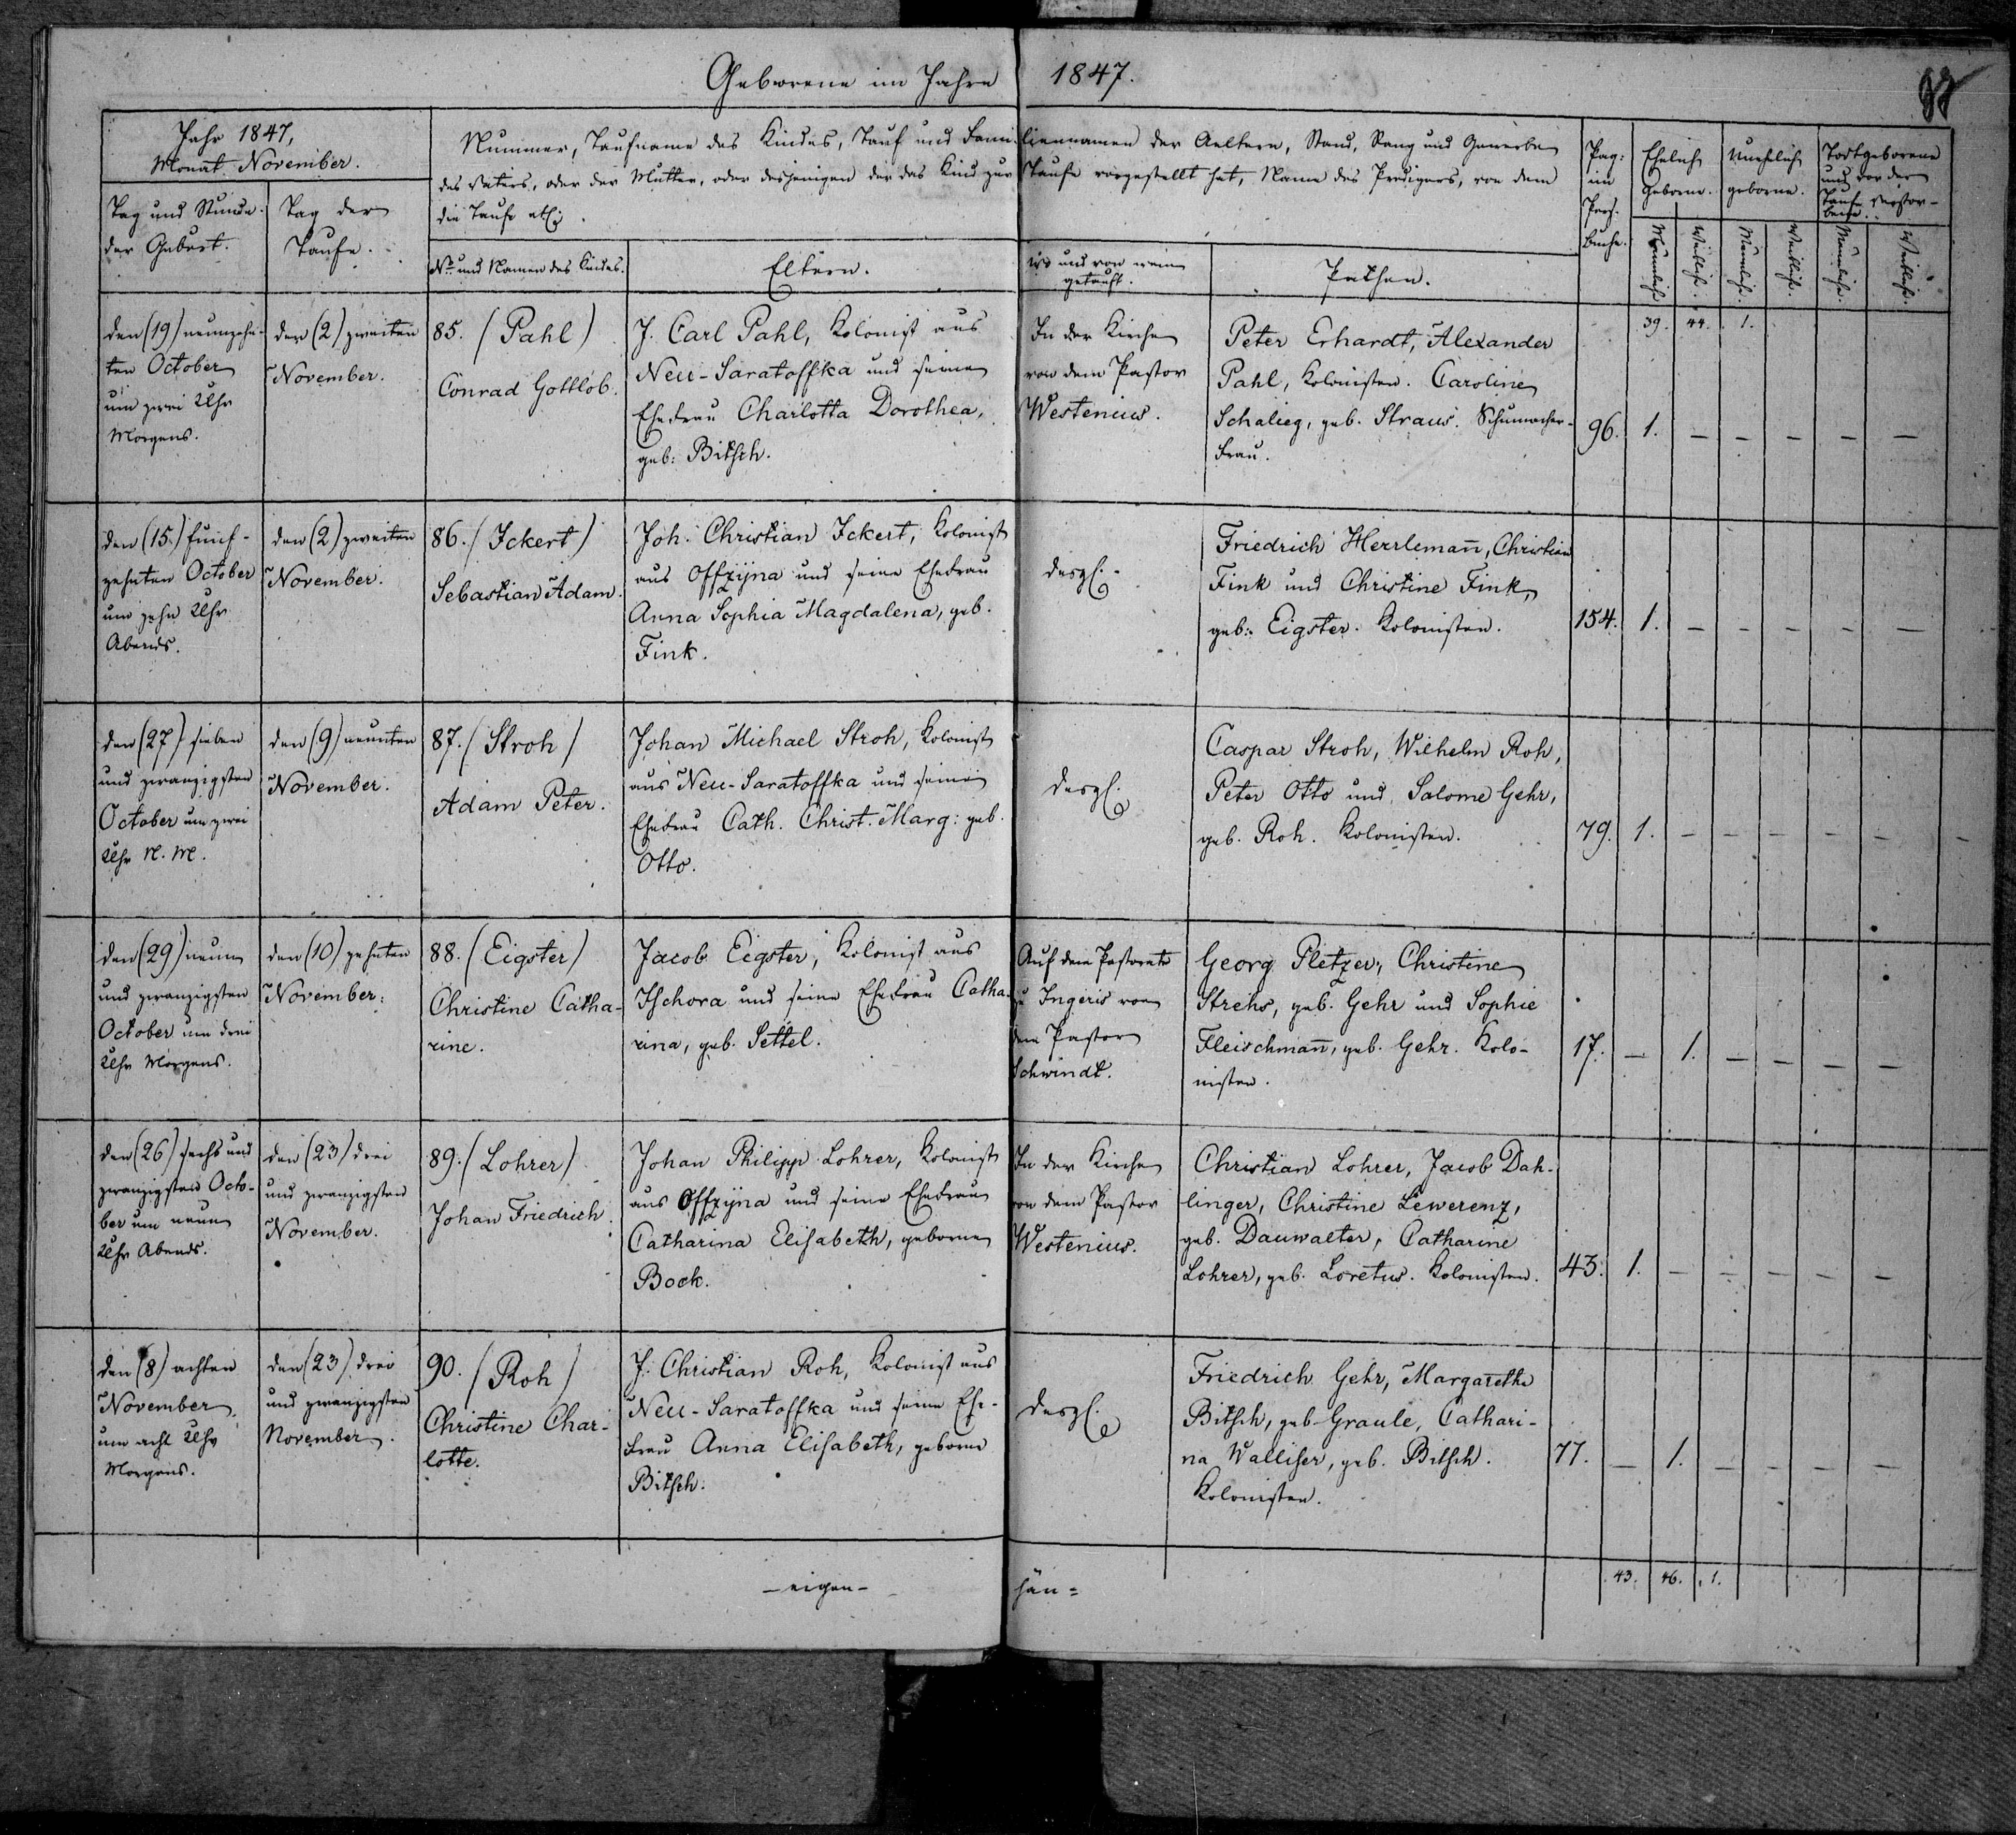 Geborene im Jahre 1847.
Jahr 1847,
Monat November.
Tag und Stunde
der Geburt.
Tag der
Taufe.
Nummer, Taufname des Kindes, Tauf und Familiennamen der Aeltern, Stand, Rang und Gewerbe
des Vaters, oder der Mutter, oder desjenigen der das Kind zur Taufe vorgestellt hat, Name des Predigers, von dem
die Taufe etc.
No und Namen des Kindes.
Eltern.
Wo und von wem
getauft.
Pathen.
Pag:
im
Pers.
buche.
Ehelich
geborne.
Unehelich
geborne.
Todtgeborene
und vor der
Taufe verstor-
bene.
Männlich.
Weiblich.
Männlich.
Weiblich.
Männlich.
Weiblich.
39. 44. 1.
den (19) neunzehn-
ten October
um zwei Uhr
Morgens.
den (2) zweiten
November.
85. (Pahl)
Conrad Gottlob.
J. Carl Pahl, Kolonist aus
Neu-Saratoffka und seine
Ehefrau Charlotta Dorothea,
geb: Bitsch.
In der Kirche
von dem Pastor
Westenius.
Peter Erhardt, Alexander
Pahl, Kolonisten. Caroline
Schalieg, geb. Straus. Schumacher-
frau.
96. 1. – – – – –
den (15.) funf-
zehnten October
um zehn Uhr
Abends.
den (2) zweiten
November.
86. (Ickert)
Sebastian Adam.
Joh. Christian Ickert, Kolonist
aus Offzijna und seine Ehefrau
Anna Sophia Magdalena, geb.
Fink.
desgl.
Friedrich Herrlemañ, Christian
Fink und Christine Fink,
geb: Eigster. Kolonisten.
154. 1. – – – – –
den (27) sieben
und zwanzigsten
October um zwei
Uhr N. M.
den (9) neunten
November.
87. (Stroh)
Adam Peter.
Johan Michael Stroh, Kolonist
aus Neu-Saratoffka und seine
Ehefrau Cath. Christ. Marg: geb.
Otto.
desgl.
Caspar Stroh, Wilhelm Roh,
Peter Otto und Salome Gehr,
geb. Roh. Kolonisten.
79. 1. – – – – –
den (29) neun
und zwanzigsten
October um drei
Uhr Morgens.
den (10) zehnten
November.
88. (Eigster)
Christine Catha-
rine.
Jacob Eigster, Kolonist aus
Ischora und seine Ehefrau Catha-
rina, geb. Settel.
Auf dem Pastorate
zu Ingeris von
dem Pastor
Schwindt.
Georg Pletzer, Christine
Strehs, geb. Gehr und Sophie
Fleischmañ, geb. Gehr. Kolo-
nisten.
17. – 1. – – – –
den (26) sechs und
zwanzigsten Octo-
ber um neun
Uhr Abends.
den (23) drei
und zwanzigsten
November.
89. (Lohrer)
Johan Friedrich.
Johan Philipp Lohrer, Kolonist
aus Offzijna und seine Ehefrau
Catharina Elisabeth, geborne
Bock.
In der Kirche
von dem Pastor
Westenius.
Christian Lohrer, Jacob Dah-
linger, Christine Lewerenz,
geb. Dauwalter, Catharine
Lohrer, geb. Loretus. Kolonisten.
43. 1. – – – – –
den (8) achten
November
um acht Uhr
Morgens.
den (23) drei
und zwanzigsten
November.
90. (Roh)
Christine Char-
lotte.
J. Christian Roh, Kolonist aus
Neu-Saratoffka und seine Ehe-
frau Anna Elisabeth, geborne
Bitsch.
desgl.
Friedrich Gehr, Margarethe
Bitsch, geb. Graule, Cathari-
na Walliser, geb. Bitsch.
Kolonisten.
77. – 1. – – – –
– eigen – hän =
43. 46. 1.